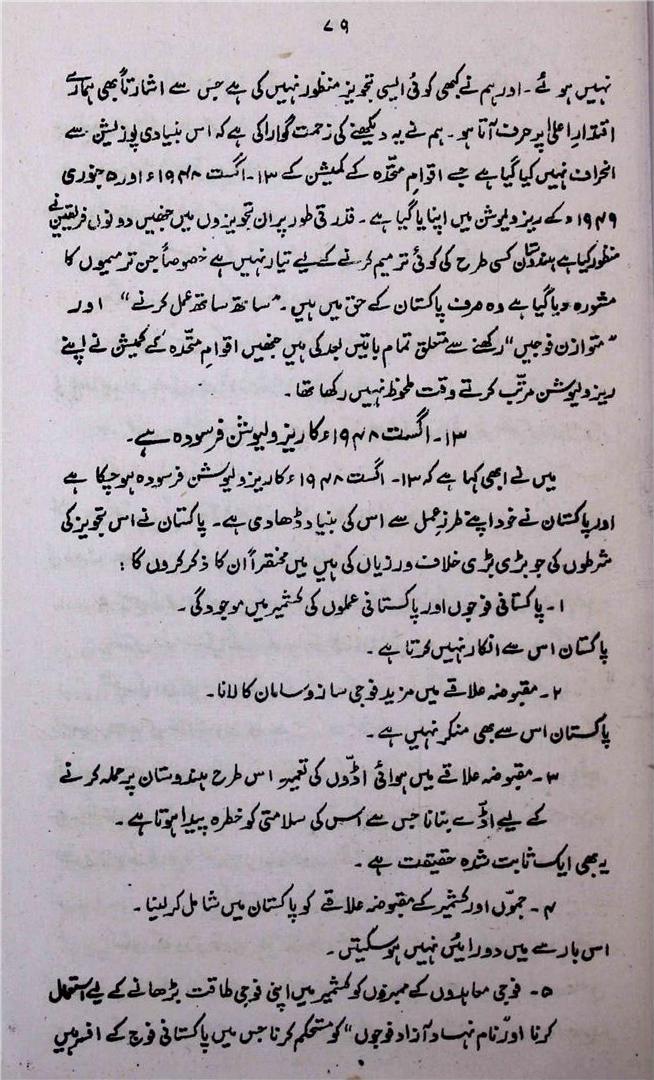 ۷۹
نہیں ہوئے۔ اور ہم نے کبھی کوئی ایسی تجویز منظور نہیں کی ہے جس سے اشارتاً بھی ہمارے
اقتدارِ اعلیٰ پر حرف آتا ہو۔ ہم نے یہ دیکھنے کی زحمت گوارا کی ہے کہ اس بنیادی پوزیشن سے
انحراف نہیں کیا گیا ہے جسے اقوامِ متحدہ کے کمیشن کے ۱۳۔ اگست ۱۹۴۸ء اور ۵ جنوری
۱۹۴۹ء کے ریزولیوشن میں اپنایا گیا ہے۔ قدرتی طور پر ان تجویزوں میں جنھیں دونوں فریقین نے
منظور کیا ہے ہندوستان کسی طرح کی کوئی ترمیم کرنے کے لیے تیار نہیں ہے خصوصاً جن ترمیموں کا
مشورہ دیا گیا ہے وہ صرف پاکستان کے حق میں ہیں۔ "ساتھ ساتھ عمل کرنے" اور
"متوازن فوجیں" رکھنے سے متعلق تمام باتیں بعد کی ہیں جنھیں اقوامِ متحدہ کے کمیشن نے اپنے
ریزولیوشن مرتب کرتے وقت ملحوظ نہیں رکھا تھا۔
۱۳۔ اگست ۱۹۴۸ء کا ریزولیوشن فرسودہ ہے۔
میں نے ابھی کہا ہے کہ ۱۳۔ اگست ۱۹۴۸ء کا ریزولیوشن فرسودہ ہو چکا ہے
اور پاکستان نے خود اپنے طرزِ عمل سے اس کی بنیاد ڈھا دی ہے۔ پاکستان نے اس تجویز کی
شرطوں کی جو بڑی بڑی خلاف ورزیاں کی ہیں میں مختصراً ان کا ذکر کروں گا:
۱۔ پاکستانی فوجوں اور پاکستانی عملوں کی کشمیر میں موجودگی۔
پاکستان اس سے انکار نہیں کرتا ہے۔
۲۔ مقبوضہ علاقے میں مزید فوجی ساز و سامان کا لانا۔
پاکستان اس سے بھی منکر نہیں ہے۔
۳۔ مقبوضہ علاقے میں ہوائی اڈوں کی تعمیر۔ اس طرح ہندوستان پر حملہ کرنے
کے لیے اڈے بنانا جس سے اس کی سلامتی کو خطرہ پیدا ہوتا ہے۔
یہ بھی ایک ثابت شدہ حقیقت ہے۔
۴۔ جموں اور کشمیر کے مقبوضہ علاقے کو پاکستان میں شامل کر لینا۔
اس بارے میں دو رایئں نہیں ہو سکیتں۔
۵۔ فوجی معاہدوں کے ممبروں کو کشمیر میں اپنی فوجی طاقت بڑھانے کے لیے استعمال
کرنا اور نام نہاد "آزاد فوجوں" کو مستحکم کرنا جس میں پاکستانی فوج کے افسر ہیں